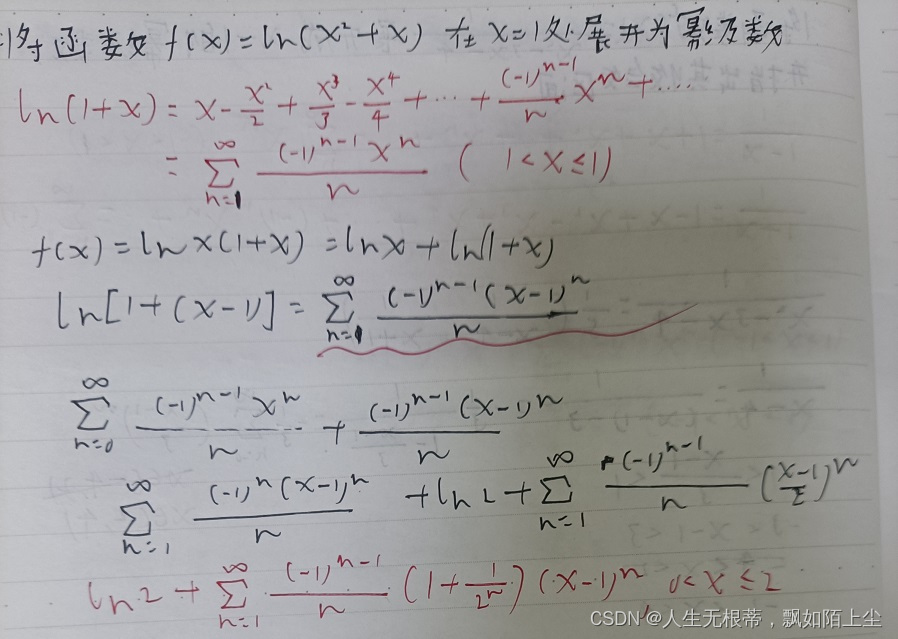 将函数 f(x)=ln(x²+x) 在 x=1处展开为幂级数
ln(1+x) = x - x²/2 + x³/3 - x⁴/4 + ⋯ + (-1)ⁿ⁻¹/n xⁿ + ⋯.
= ∑_{n=1}^{∞} (-1)ⁿ⁻¹xⁿ/n ( 1<x≤1)
f(x) = ln x(1+x) = ln x + ln(1+x)
ln[1+(x-1)] = ∑_{n=1}^{∞} (-1)ⁿ⁻¹(x-1)ⁿ/n
∑_{n=0}^{∞} (-1)ⁿ⁻¹xⁿ/n + (-1)ⁿ⁻¹(x-1)ⁿ/n
∑_{n=1}^{∞} (-1)ⁿ(x-1)ⁿ/n + ln 2 + ∑_{n=1}^{∞} (-1)ⁿ⁻¹/n ((x-1)/2)ⁿ
ln 2 + ∑_{n=1}^{∞} (-1)ⁿ⁻¹/n (1+1/2ⁿ)(x-1)ⁿ, 0<x≤2
CSDN @人生无根蒂，飘如陌上尘